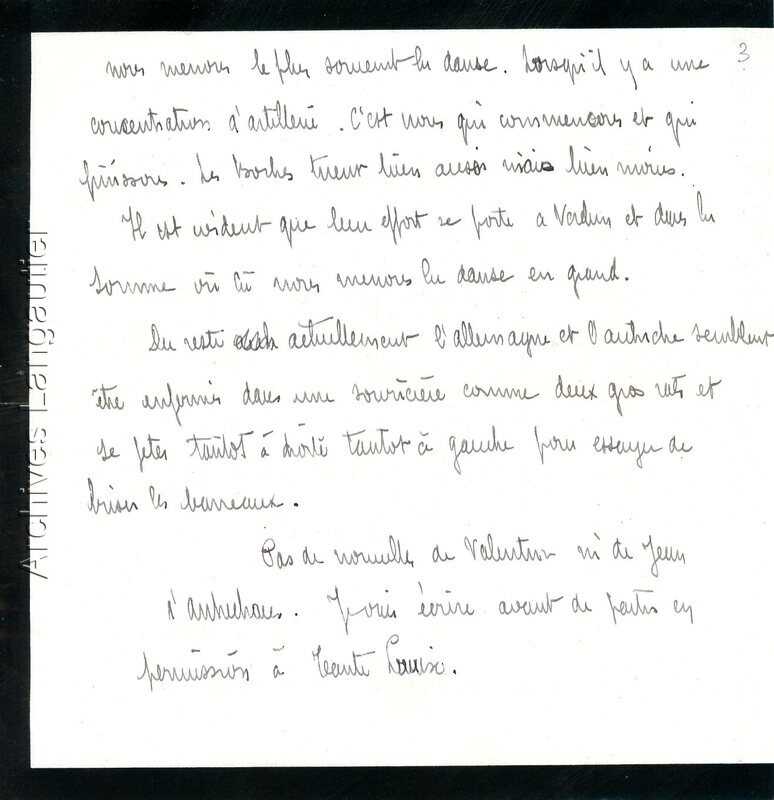 3
nous menons le plus souvent la danse. Lorsqu'il y a une
concentration d'artillerie. C'est nous qui commencons et qui
finissons. Les Boches tuent bien aussi mais bien moins.
Il est évident que leur effort se porte a Verdun et dans la
Somme où là nous menons la danse en grand.
Du reste actuellement l'allemagne et l'autriche semblent
être enfermés dans une souricière comme deux gros rats et
se jeter tantôt à droite tantot à gauche pour essayer de
briser les barreaux.
Pas de nouvelles de Valentin ni de Jean
Je vais écrire avant de partir en
permission à Tante Louise.
Archives Langautier